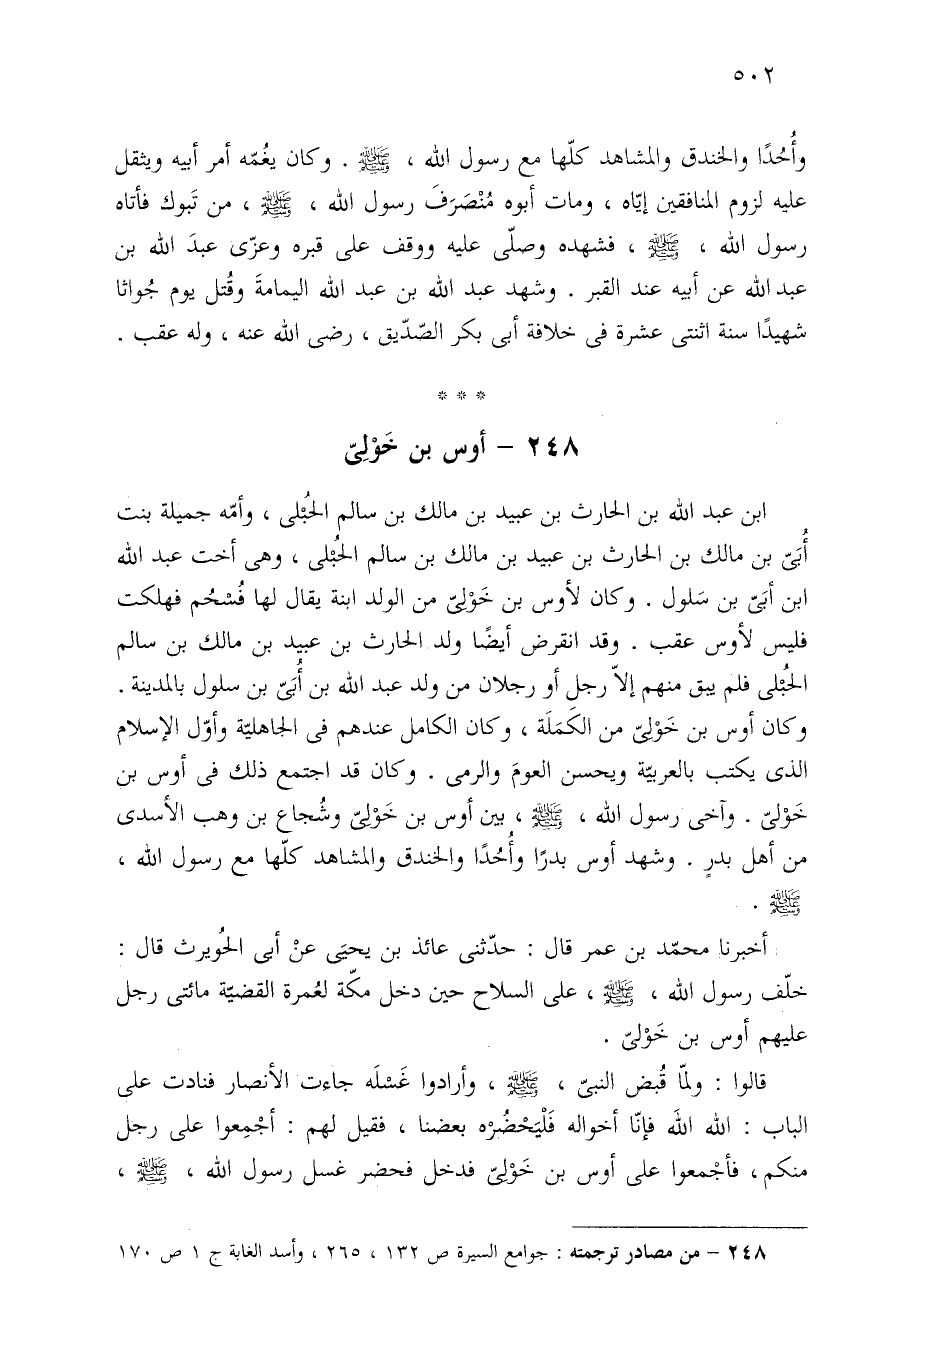 ٥٠٢
وأُحُدًا والخندق والمشاهد كلّها مع رسول الله ، ﷺ . وكان يغُمّه أمر أبيه ويثقل
عليه لزوم المنافقين إيّاه ، ومات أبوه مُنْصَرَفَ رسول الله ، ﷺ ، من تَبوك فأتاه
رسول الله ، ﷺ ، فشهده وصلّى عليه ووقف على قبره وعزّى عبدَ الله بن
عبد الله عن أبيه عند القبر . وشهد عبد الله بن عبد الله اليمامةَ وقُتل يوم جُواثا
شهيدًا سنة اثنتى عشرة فى خلافة أبى بكر الصّدّيق ، رضى الله عنه ، وله عقب .
* * *
٢٤٨ – أوس بن خَوْلِىّ
ابن عبد الله بن الحارث بن عبيد بن مالك بن سالم الحُبْلى ، وأمّه جميلة بنت
أُبَىّ بن مالك بن الحارث بن عبيد بن مالك بن سالم الحُبْلى ، وهى أخت عبد الله
ابن أبَىّ بن سَلول . وكان لأوس بن خَوْلِىّ من الولد ابنة يقال لها فُسْحُم فهلكت
فليس لأوس عقب . وقد انقرض أيضًا ولد الحارث بن عبيد بن مالك بن سالم
الحُبْلى فلم يبق منهم إلاّ رجل أو رجلان من ولد عبد الله بن أُبَىّ بن سلول بالمدينة .
وكان أوس بن خَوْلِىّ من الكَمَلَة ، وكان الكامل عندهم فى الجاهليّة وأوّل الإسلام
الذى يكتب بالعربيّة ويحسن العومَ والرمى . وكان قد اجتمع ذلك فى أوس بن
خَوْلىّ . وآخى رسول الله ، ﷺ ، بين أوس بن خَوْلِىّ وشُجاع بن وهب الأسدى
من أهل بدرٍ . وشهد أوس بدرًا وأُحُدًا والخندق والمشاهد كلّها مع رسول الله ،
ﷺ .
أخبرنا محمّد بن عمر قال : حدّثنى عائذ بن يحيَى عنْ أبى الحُويرث قال :
خلّف رسول الله ، ﷺ ، على السلاح حين دخل مكّة لعُمرة القضيّة مائتى رجل
عليهم أوس بن خَوْلىّ .
قالوا : ولمّا قُبض النبىّ ، ﷺ ، وأرادوا غَسْلَه جاءت الأنصار فنادت على
الباب : الله اللهَ فإنّا أخواله فَلْيَحْضُرْه بعضنا ، فقيل لهم : أجْمِعوا على رجل
منكم ، فأجْمعوا على أوس بن خَوْلِىّ فدخل فحضر غسل رسول الله ، ﷺ ،
٢٤٨ – من مصادر ترجمته : جوامع السيرة ص ١٣٢ ، ٢٦٥ ، وأسد الغابة ج ١ ص ١٧٠